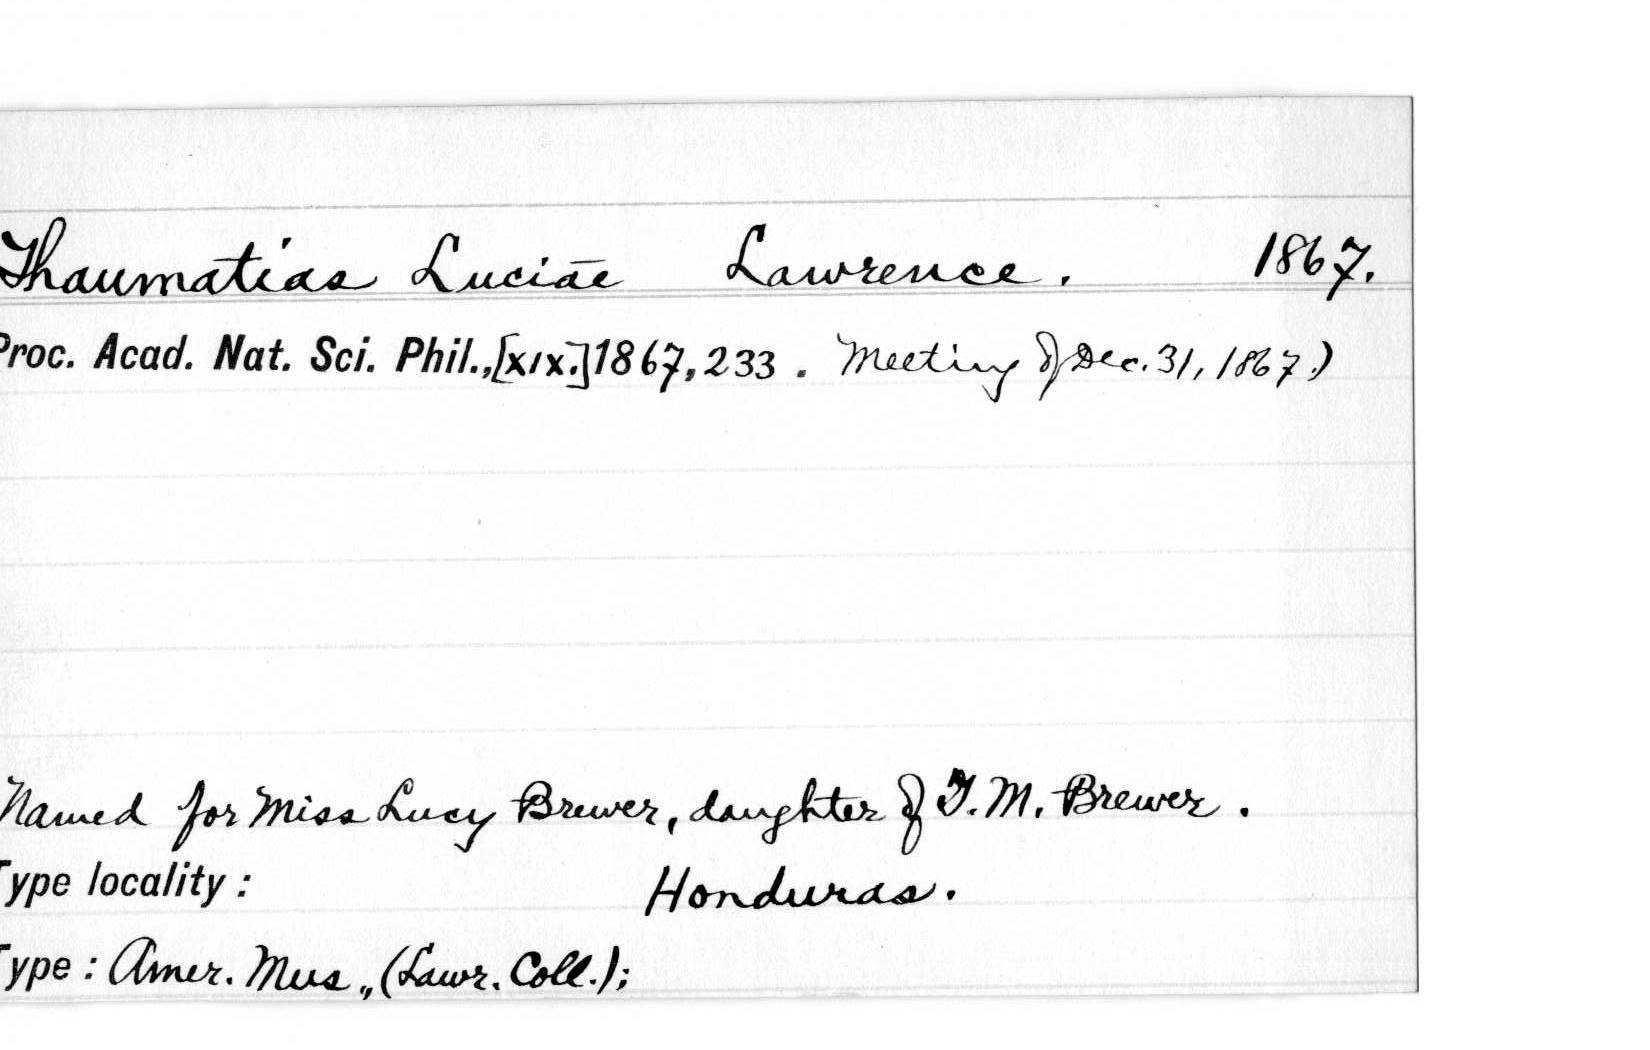 Thaumatias Luciae Lawrence. 1867.
Proc. Acad. Nat. Sci. Phil., [XIX.] 1867, 233. Meeting of Dec. 31, 1867.)
Named for Miss Lucy Brewer, daughter of T. M. Brewer.
Type locality: Honduras.
Type: Amer. Mus., (Lawr. Coll.);